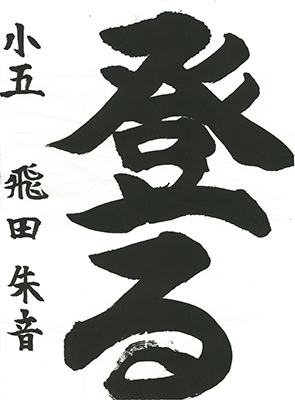 登る
小五 飛田朱音